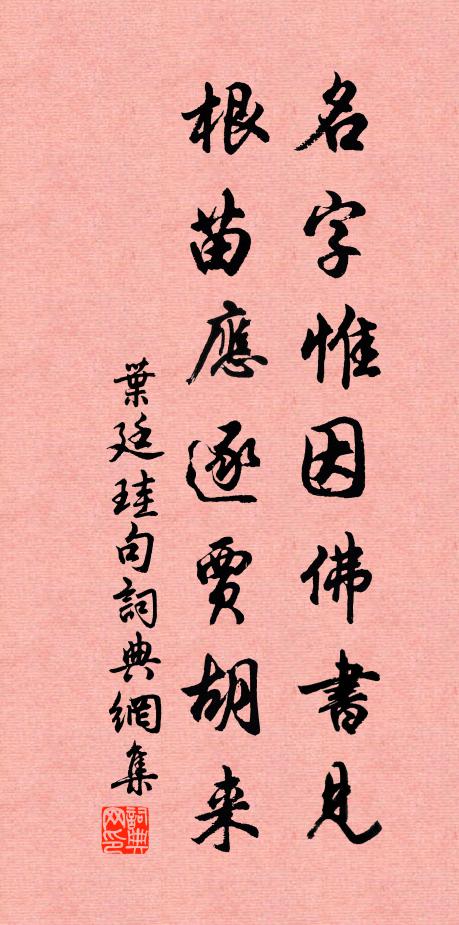 名字惟因佛書見
根苗應逐賈胡来
葉廷珪句詞典網集
詞典网印